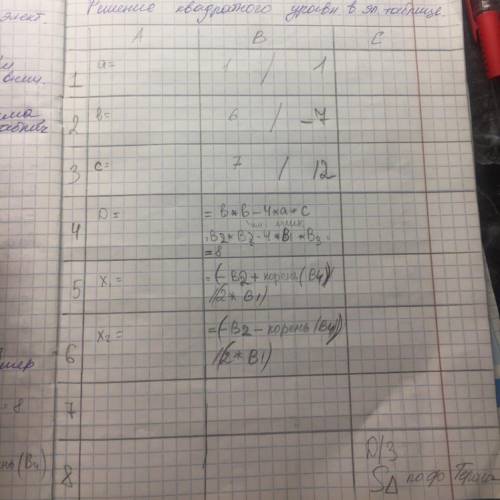 Решение квадратного уравн. в эл. таблице.
A B C
1 a= 1 / 1
2 b= 6 / -7
3 c= 7 / 12
4 D= = b*b-4*a*c
B2*B2-4*B1*B3
=8
5 X₁= =(-B2+корень(B4))
/(2*B1)
6 X₂= =(-B2-корень(B4))
/(2*B1)
7
8
D/З
S∆ по ф Герона
элект.
= 8
нь(B4)